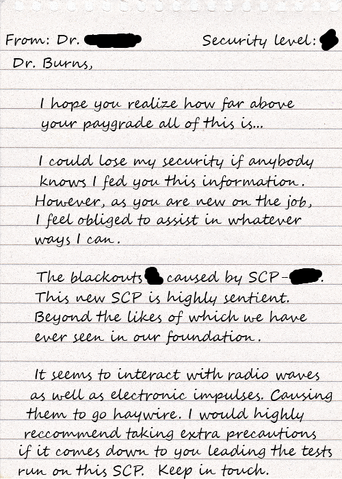 From: Dr. Security level:
Dr. Burns,
I hope you realize how far above
your paygrade all of this is...
I could lose my security if anybody
knows I fed you this information.
However, as you are new on the job,
I feel obliged to assist in whatever
ways I can.
The blackouts caused by SCP- .
This new SCP is highly sentient.
Beyond the likes of which we have
ever seen in our foundation.
It seems to interact with radio waves
as well as electronic impulses. Causing
them to go haywire. I would highly
reccommend taking extra precautions
if it comes down to you leading the tests
run on this SCP. Keep in touch.